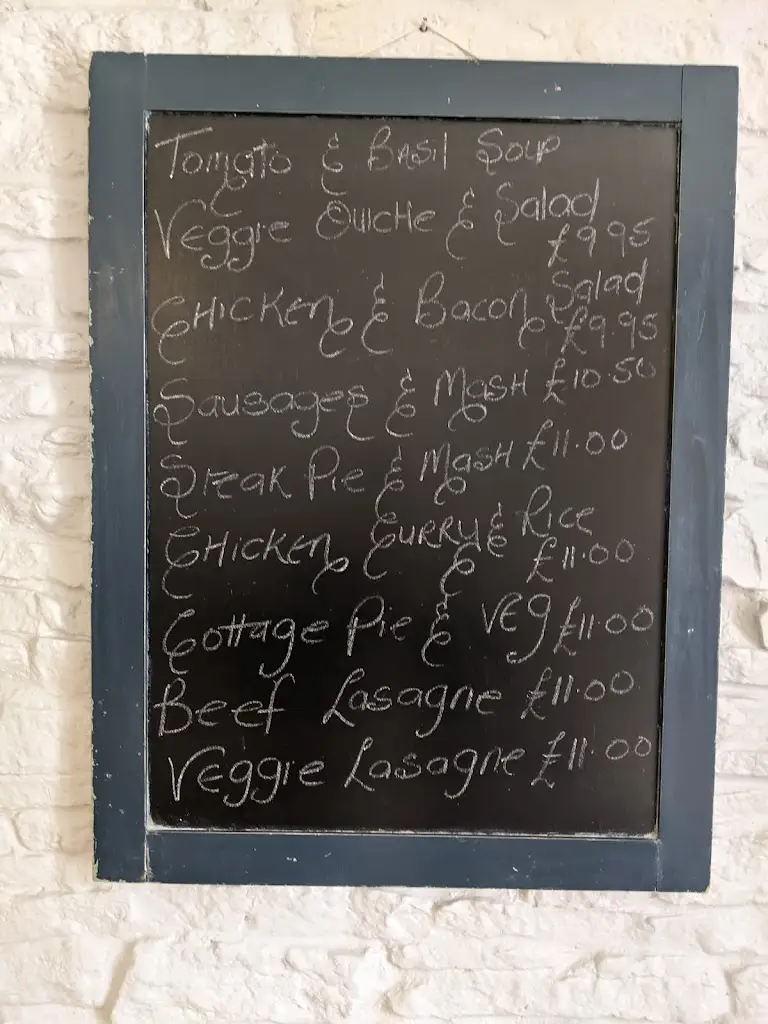 Tomato & Basil Soup
Veggie Quiche & Salad
£9.95
Chicken & Bacon Salad
£9.95
Sausages & Mash £10.50
Steak Pie & Mash £11.00
Chicken Curry & Rice
£11.00
Cottage Pie & Veg £11.00
Beef Lasagne £11.00
Veggie Lasagne £11.00